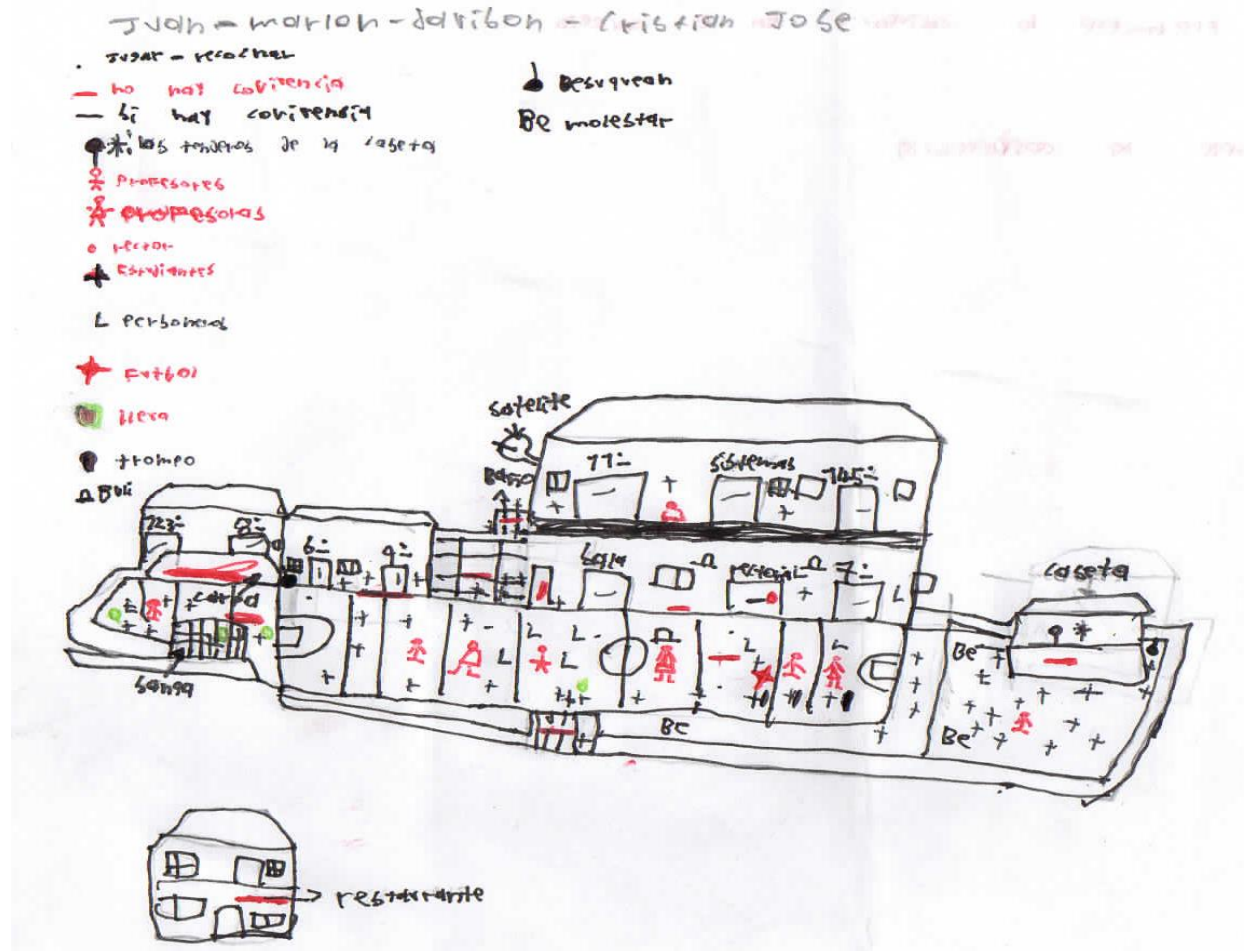 Juan - marlon - Jaribon - Cristian Jose
. Jugar - recochar
— no hay convivencia
— si hay convivensia
los tenderos de la caseta
Profesores
Profesoras
rector
Estudiantes
L personeros
Futbol
llexa
trompo
Desuquean
Be molestar
satelite
Baño
11:
sistemas
6:
9:
sala
rectoria
7:
L
caseta
carisa
L
L
L
L
Be
Be
BE
restaurante